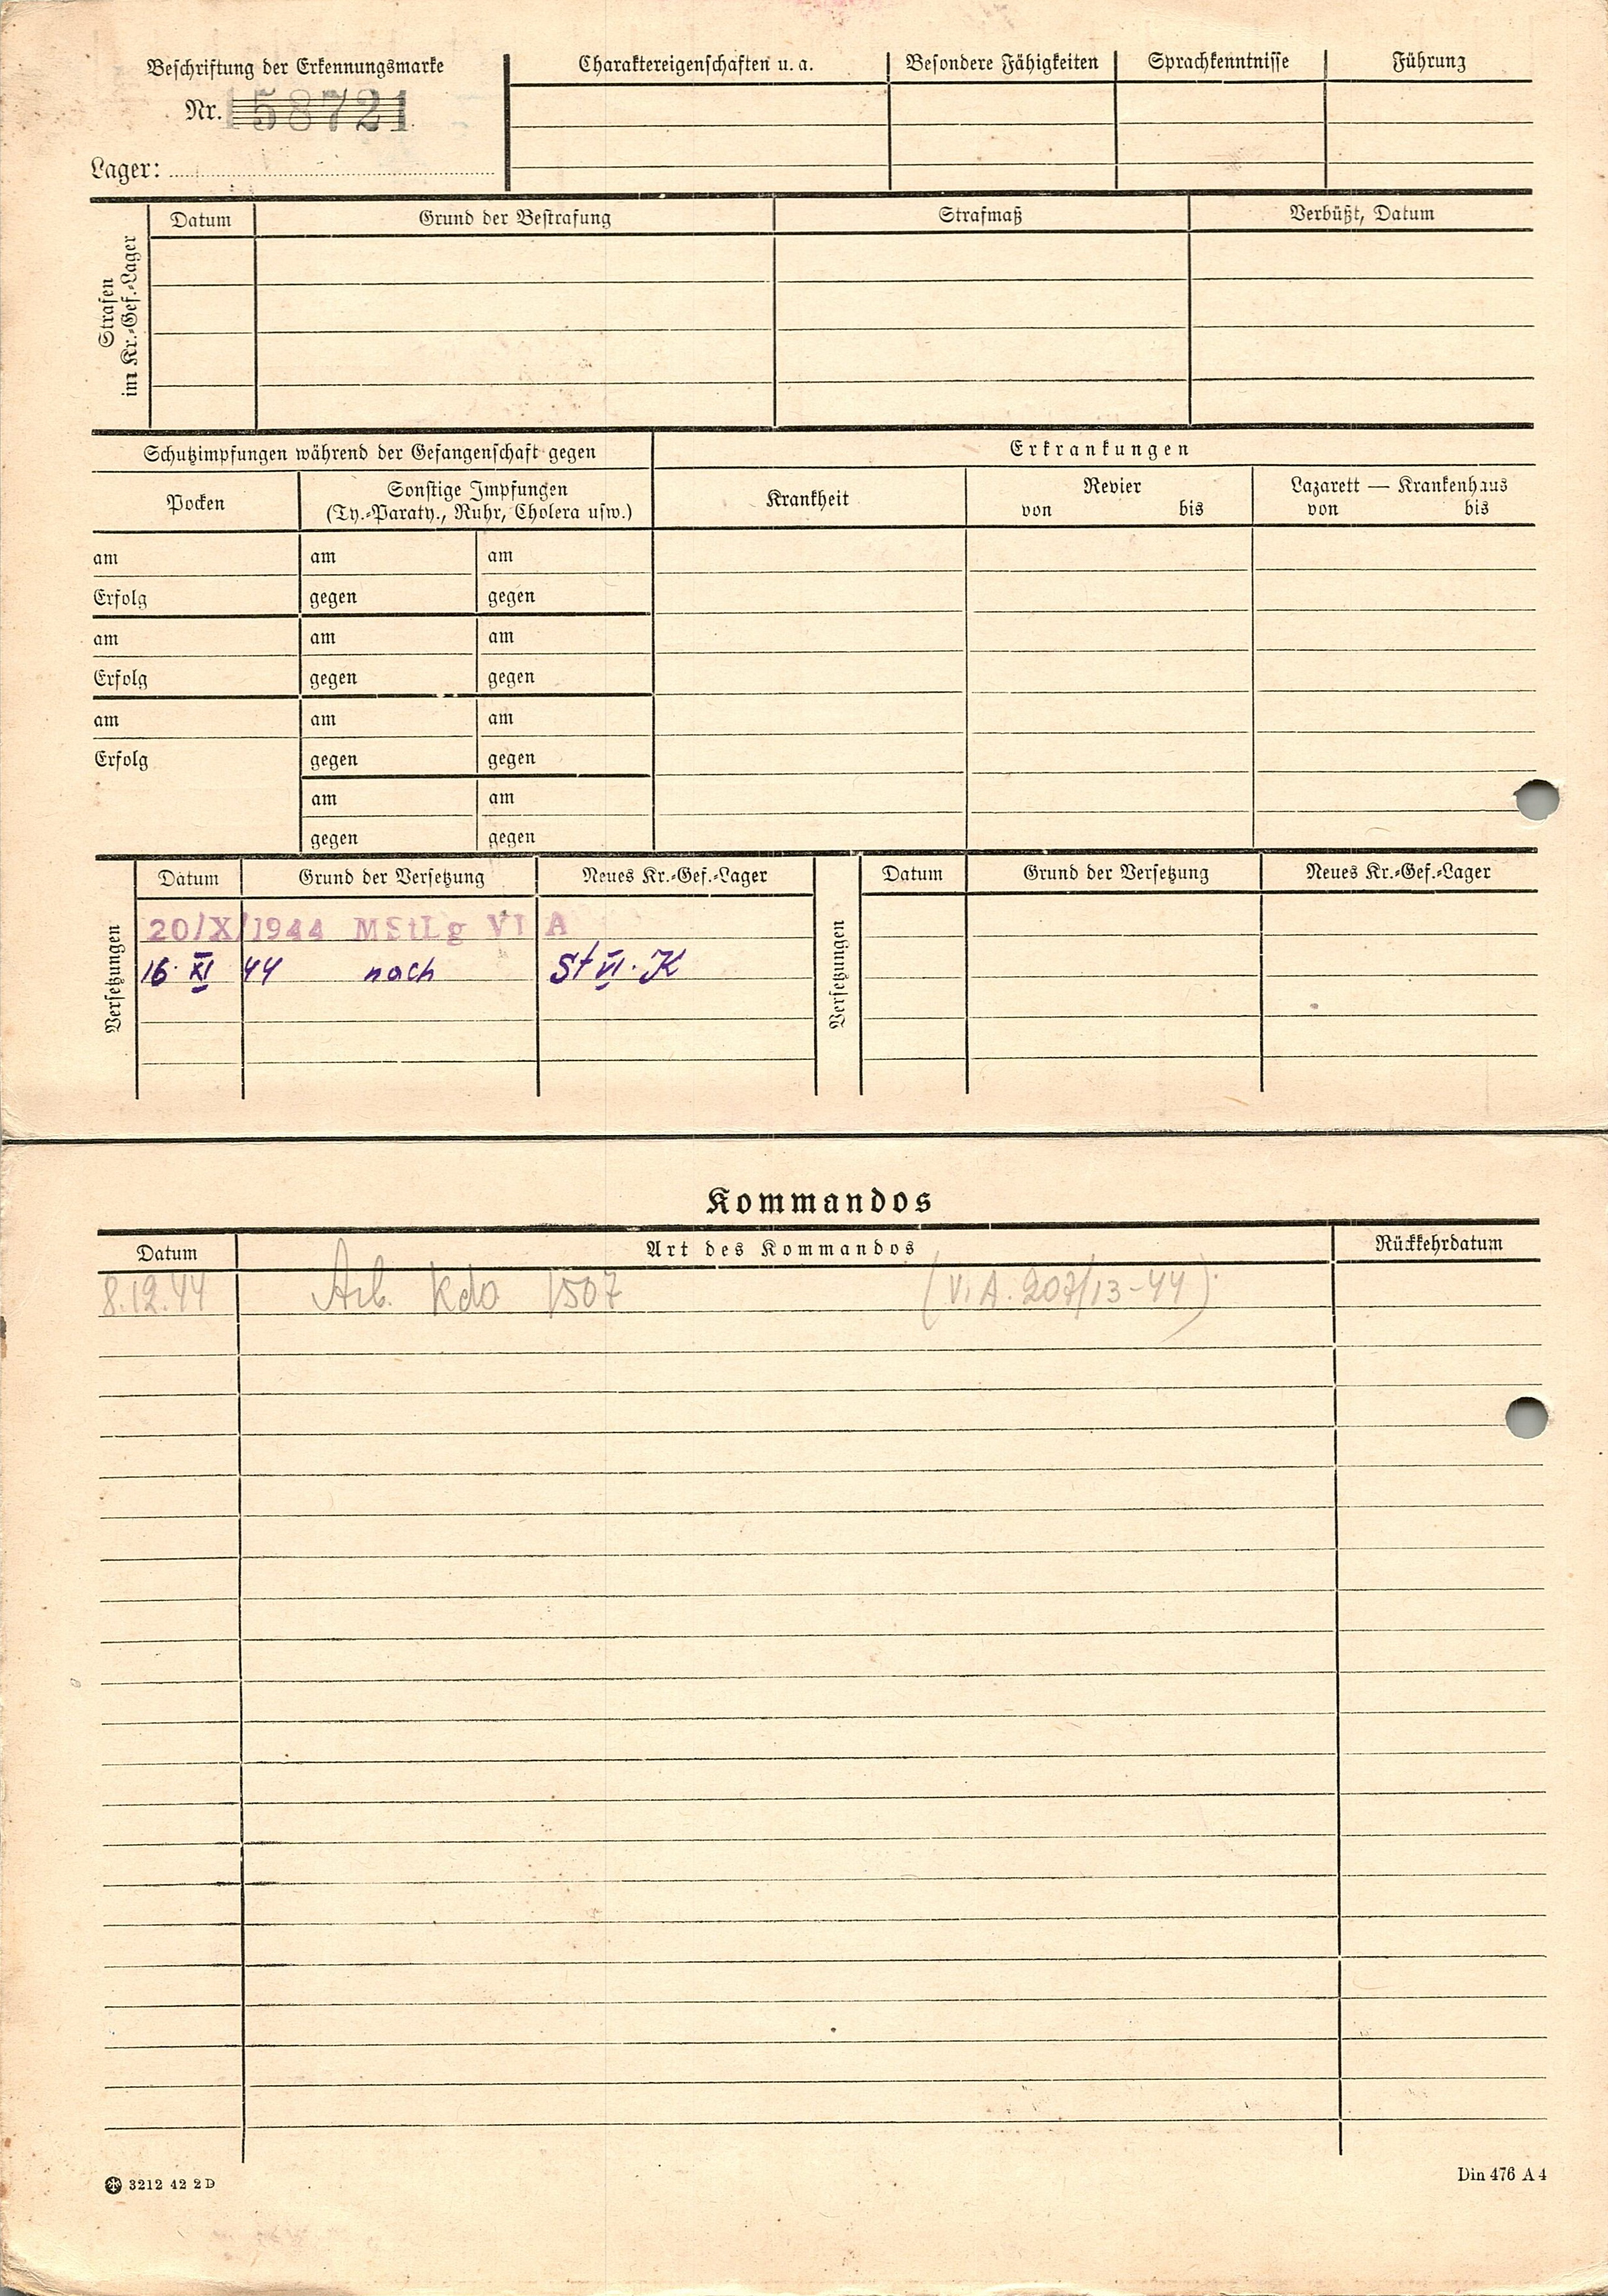 Beschriftung der Erkennungsmarke
Nr. 158721
Lager:
Charaktereigenschaften u. a.
Besondere Fähigkeiten
Sprachkenntnisse
Führung
Strafen
im Kr.-Gef.-Lager
Datum
Grund der Bestrafung
Strafmaß
Verbüßt, Datum
Schutzimpfungen während der Gefangenschaft gegen
Erkrankungen
Pocken
Sonstige Impfungen
(Ty.-Paraty., Ruhr, Cholera usw.)
Krankheit
Revier
von bis
Lazarett — Krankenhaus
von bis
am am am
Erfolg gegen gegen
am am am
Erfolg gegen gegen
am am am
Erfolg gegen gegen
am am
gegen gegen
Versetzungen
Datum Grund der Versetzung Neues Kr.-Gef.-Lager
20/X/1944 MStLg VI A
16. XI 44 nach St VI. K
Versetzungen
Datum Grund der Versetzung Neues Kr.-Gef.-Lager
Kommandos
Datum Art des Kommandos Rückkehrdatum
8.12.44 Arb. Kdo 1507 (V. A. 207/13-44)
3212 42 2 D
Din 476 A 4